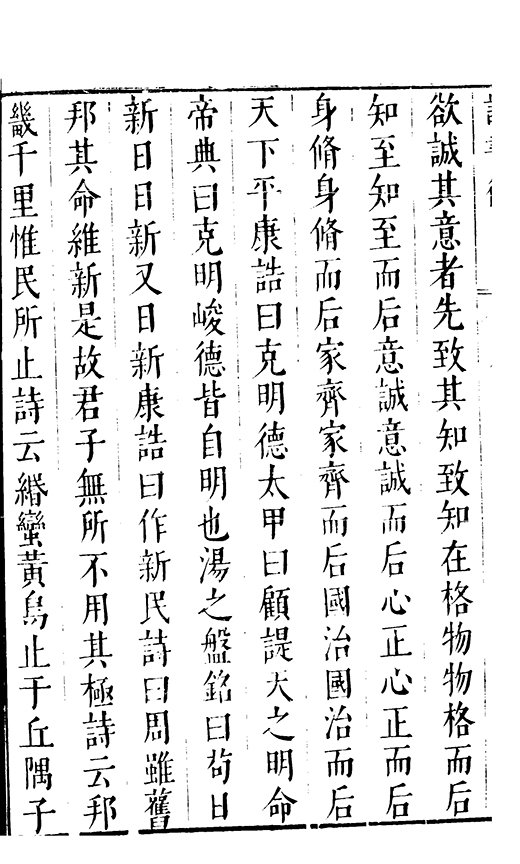 欲誠其意者先致其知致知在格物物格而后
知至知至而后意誠意誠而后心正心正而后
身脩身脩而后家齊家齊而后國治國治而后
天下平康誥曰克明德太甲曰顧諟天之明命
帝典曰克明峻德皆自明也湯之盤銘曰苟日
新日日新又日新康誥曰作新民詩曰周雖舊
邦其命維新是故君子無所不用其極詩云邦
畿千里惟民所止詩云緡蠻黃鳥止于丘隅子